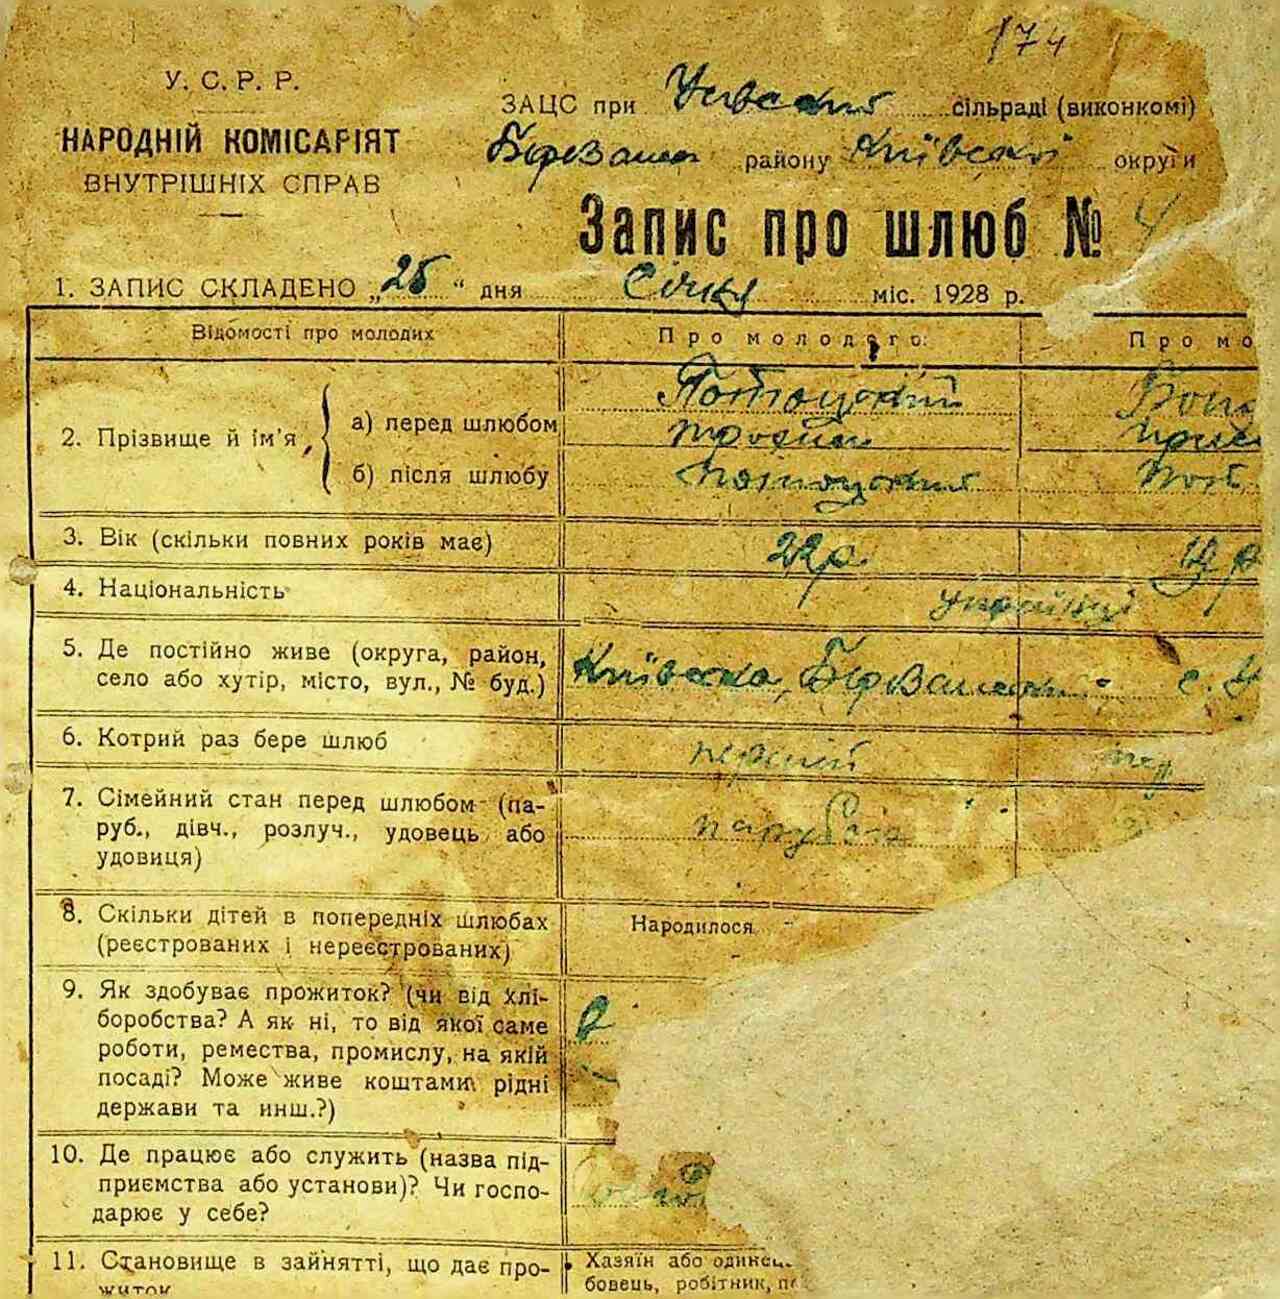 174
У. С. Р. Р.
НАРОДНІЙ КОМІСАРІЯТ
ВНУТРІШНІХ СПРАВ
ЗАЦС при сільраді (виконкомі)
району Київської округи
Запис про шлюб № 4
1. ЗАПИС СКЛАДЕНО „25“ дня Січня міс. 1928 р.
Відомості про молодих
Про молодого:
Про мо
2. Прізвище й ім'я
а) перед шлюбом
Потоцький
Трохим
б) після шлюбу
Потоцький
Пот
3. Вік (скільки повних років має)
22 р.
4. Національність
українці
5. Де постійно живе (округа, район,
село або хутір, місто, вул., № буд.)
Київська, с.
6. Котрий раз бере шлюб
перший
7. Сімейний стан перед шлюбом (па-
руб., дівч., розлуч., удовець або
удовиця)
8. Скільки дітей в попередніх шлюбах
(реєстрованих і нереєстрованих)
Народилося
9. Як здобуває прожиток? (чи від хлі-
боробства? А як ні, то від якої саме
роботи, ремества, промислу, на якій
посаді? Може живе коштами рідні
держави та инш.?)
10. Де працює або служить (назва під-
приємства або установи)? Чи госпо-
дарює у себе?
11. Становище в зайнятті, що дає про-
житок
Хазяїн або
бовець, робітник,